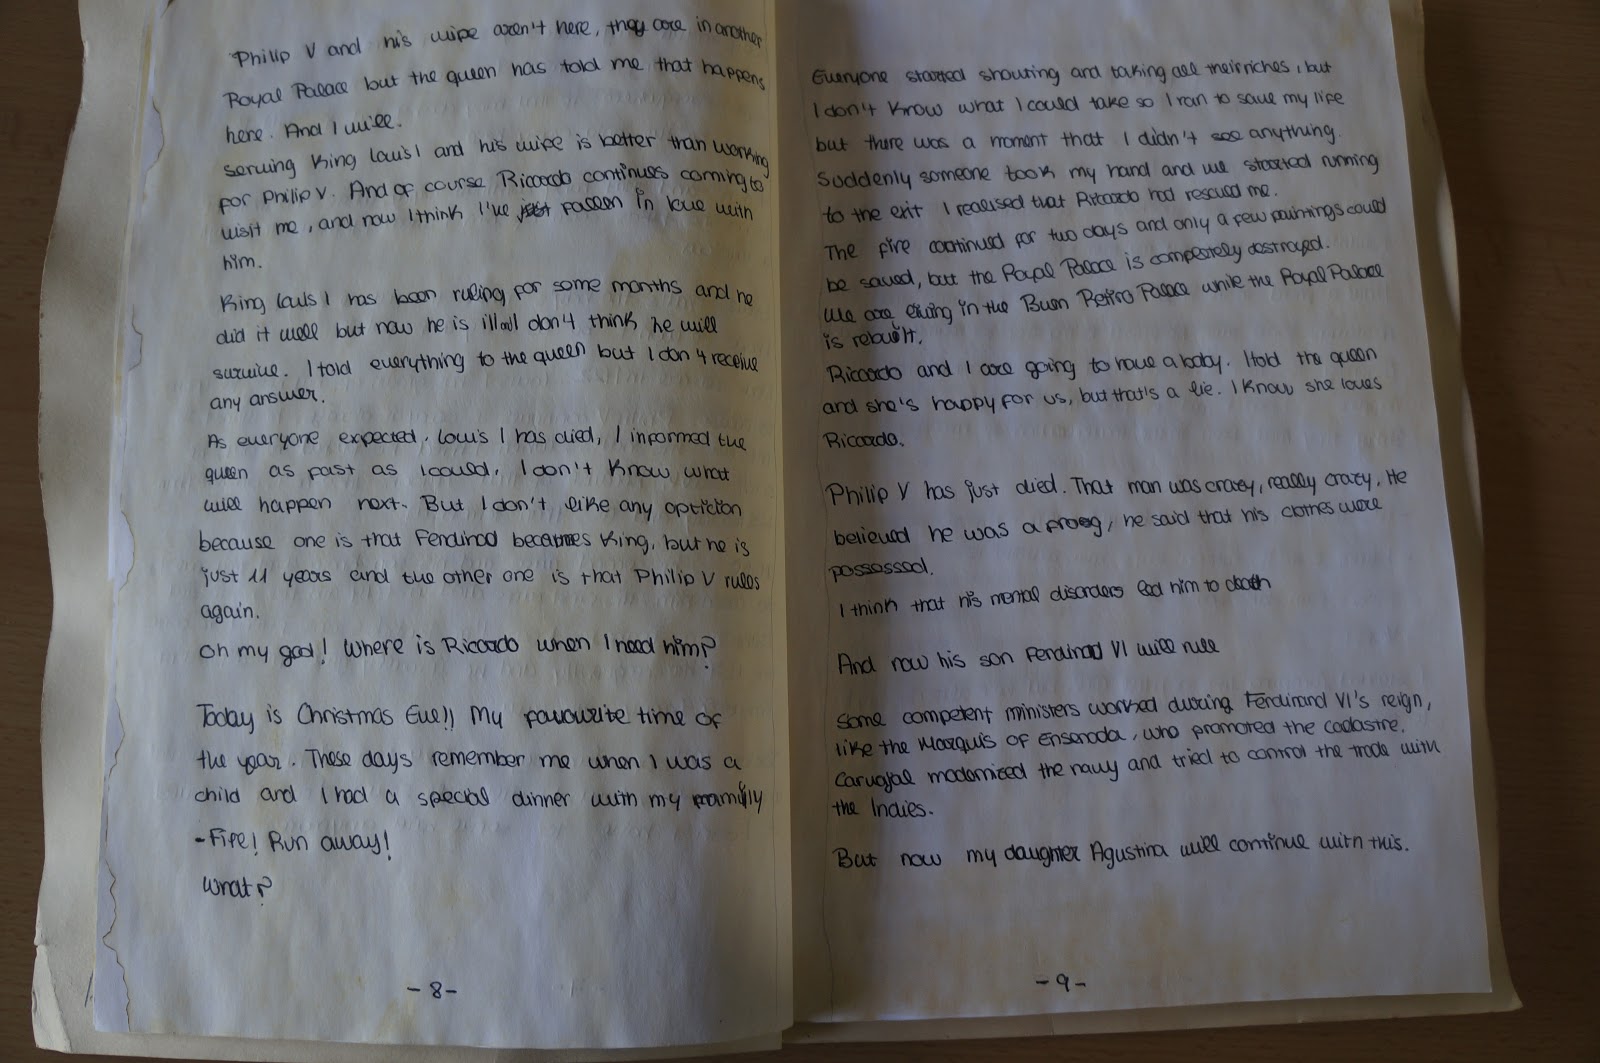 Philip V and his wipe aren't here, they are in another
Royal Palace but the queen has told me that happens
here. And I will.
serving King Louis I and his wipe is better than working
for Philip V. And of course Riccardo continues coming to
visit me, and now I think I've just fallen in love with
him.
King Louis I has been ruling for some months and he
did it well but now he is ill don't think he will
survive. I told everything to the queen but I don't receive
any answer.
As everyone expected, Louis I has died, I informed the
queen as fast as I could, I don't know what
will happen next. But I don't like any optiction
because one is that Ferdinad becames King, but he is
just 11 years and the other one is that Philip V rules
again.
Oh my god! Where is Riccardo when I need him?
Today is Christmas Eve!! My favourite time of
the year. These days remember me when I was a
child and I had a special dinner with my family
-Fire! Run away!
What?
-8-
Everyone started shouting and taking all their riches, but
I don't know what I could take so I ran to save my life
but there was a moment that I didn't see anything.
Suddenly someone took my hand and we started running
to the exit I realised that Riccardo had rescued me.
The fire continued for two days and only a few paintings could
be saved, but the Royal Palace is completely destroyed.
We are living in the Buen Retiro Palace while the Royal Palace
is rebuilt.
Riccardo and I are going to have a baby. I told the queen
and she's happy for us, but that's a lie. I know she loves
Riccardo.
Philip V has just died. That man was crazy, really crazy, He
believed he was a frog, he said that his clothes were
possessed.
I think that his mental disorders led him to death
And now his son Ferdinad VI will rule
Some competent ministers worked during Ferdinand VI's reign,
like the Marquis of Ensenada, who promoted the cadastre.
Carvajal modernized the navy and tried to control the trade with
the Indies.
But now my daughter Agustina will continue with this.
-9-